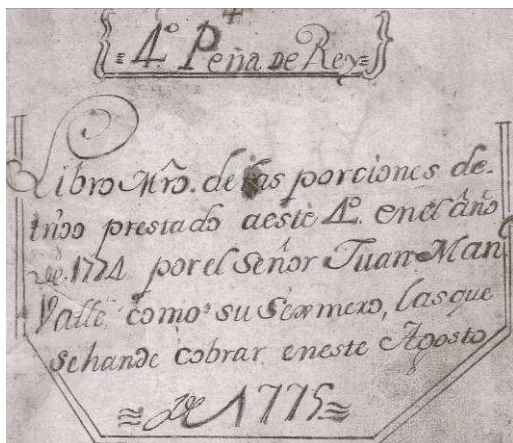 4.º Peña de Rey
Libro Mro. de las porciones de-
trigo prestado aeste 4.º enel año
de 1774 por el Señor Juan Man.
Valle como su Sexmero, lasque
sehande cobrar eneste Agosto
de 1775